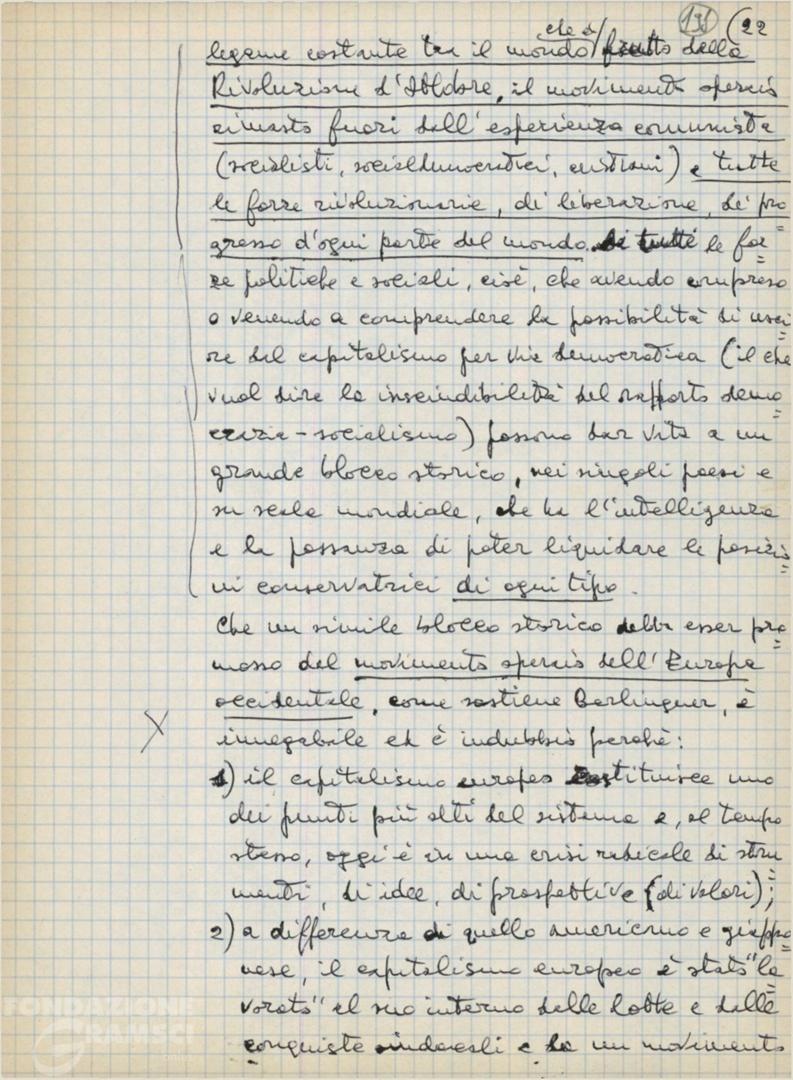 136 (22
che è
legame costante tra il mondo frutto della
Rivoluzione d'Ottobre, il movimento operaio
rimasto fuori dall'esperienza comunista
(socialisti, socialdemocratici, cristiani) e tutte
le forze rivoluzionarie, di liberazione, di pro=
gresso d'ogni parte del mondo. Di tutte le for=
ze politiche e sociali, cioè, che avendo compreso
o venendo a comprendere la possibilità di usci=
re dal capitalismo per via democratica (il che
vuol dire la inscindibilità del rapporto demo=
crazia-socialismo) possono dar vita a un
grande blocco storico, nei singoli paesi e
su scala mondiale, che ha l'intelligenza
e la possanza di poter liquidare le posizio=
ni conservatrici di ogni tipo.
Che un simile blocco storico debba esser pro=
mosso dal movimento operaio dell'Europa
occidentale, come sostiene Berlinguer, è
X innegabile ed è indubbio perché:
1) il capitalismo europeo costituisce uno
dei punti più alti del sistema e, al tempo
stesso, oggi è in una crisi radicale di stru=
menti, di idee, di prospettive (di valori);
2) a differenza di quello americano e giappo=
nese, il capitalismo europeo è stato "la=
vorato" al suo interno dalle lotte e dalle
conquiste sindacali e ha un movimento
FONDAZIONE
GRAMSCI